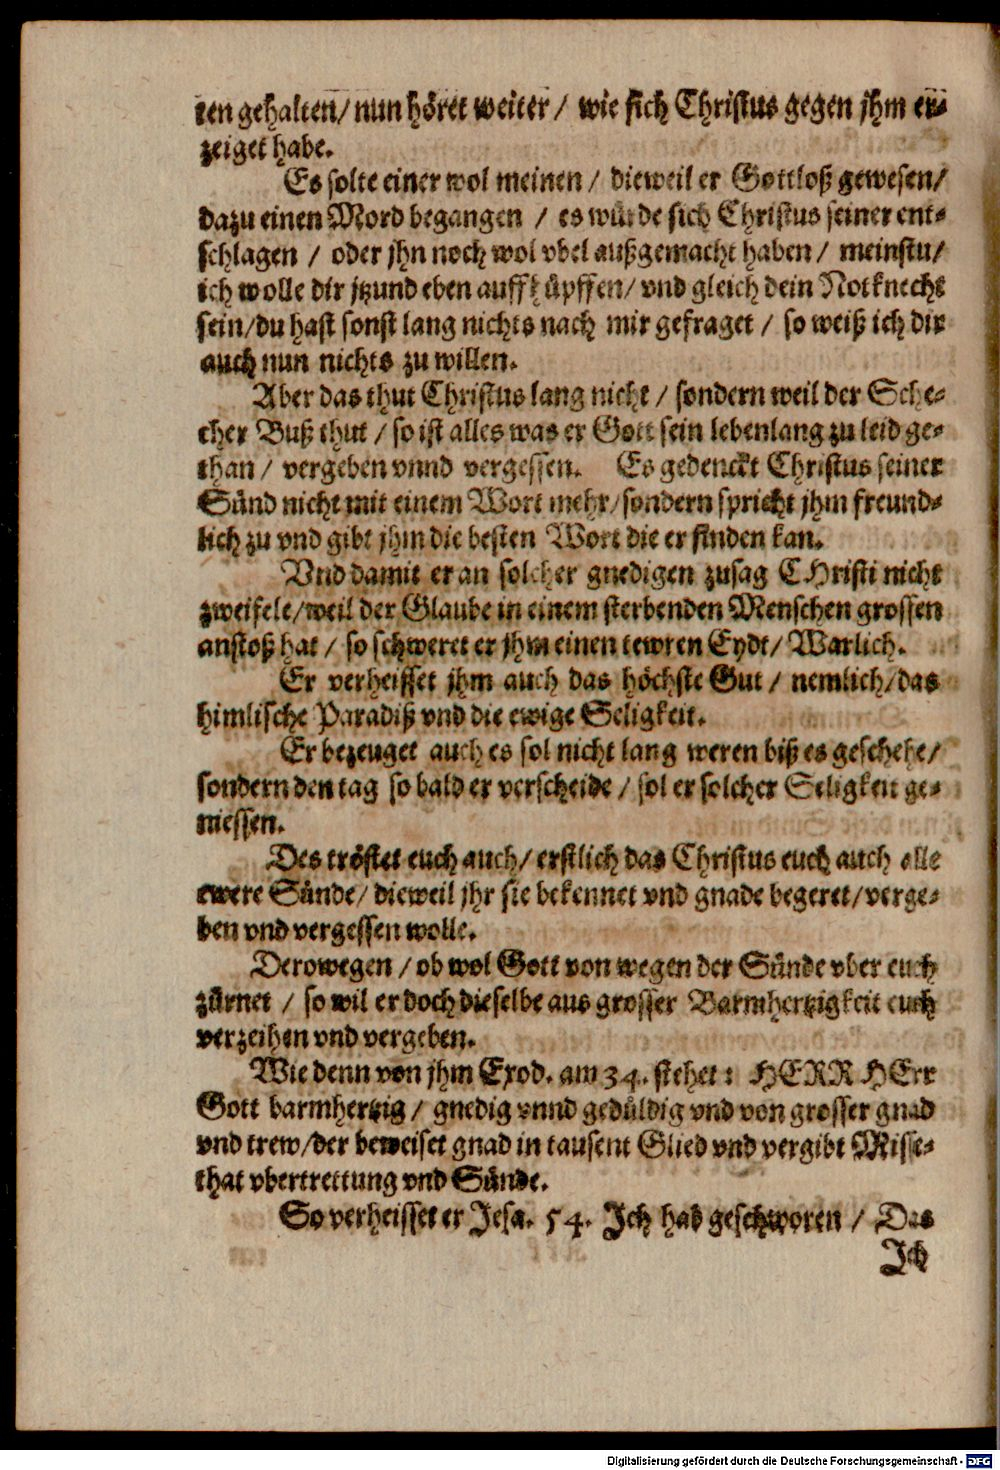 ten gehalten/ nun höret weiter / wie sich Christus gegen jhm er-
zeiget habe.
Es solte einer wol meinen / dieweil er Gottloß gewesen/
dazu einen Mord begangen / es würde sich Christus seiner ent-
schlagen / oder jhn noch wol vbel außgemacht haben / meinstu/
ich wolle dir jtzund eben auffhüpffen/ vnd gleich dein Notknecht
sein/ du hast sonst lang nichts nach mir gefraget / so weiß ich dir
auch nun nichts zu willen.
Aber das thut Christus lang nicht / sondern weil der Sche-
cher Buß thut / so ist alles was er Gott sein lebenlang zu leid ge-
than / vergeben vnnd vergessen. Es gedenckt Christus seiner
Sünd nicht mit einem Wort mehr/ sondern spricht jhm freund-
lich zu vnd gibt jhm die besten Wort die er finden kan.
Vnd damit er an solcher gnedigen zusag CHristi nicht
zweifele/ weil der Glaube in einem sterbenden Menschen grossen
anstoß hat / so schweret er jhm einen tewren Eydt/ Warlich.
Er verheisset jhm auch das höchste Gut / nemlich/ das
himlische Paradiß vnd die ewige Seligkeit.
Er bezeuget auch es sol nicht lang weren biß es geschehe/
sondern den tag so bald er verscheide / sol er solcher Seligkeit ge-
niessen.
Des tröstet euch auch/ erstlich das Christus euch auch alle
ewere Sünde/ dieweil jhr sie bekennet vnd gnade begeret/ verge-
ben vnd vergessen wolle.
Derowegen / ob wol Gott von wegen der Sünde vber euch
zürnet / so wil er doch dieselbe aus grosser Barmhertzigkeit euch
verzeihen vnd vergeben.
Wie denn von jhm Exod. am 34. stehet: HERR HErr
Gott barmhertzig / gnedig vnnd gedüldig vnd von grosser gnad
vnd trew/ der beweiset gnad in tausent Glied vnd vergibt Misse-
that vbertrettung vnd Sünde.
So verheisset er Jesa. 54. Jch hab geschworen / Das
Jch
Digitalisierung gefördert durch die Deutsche Forschungsgemeinschaft - DFG